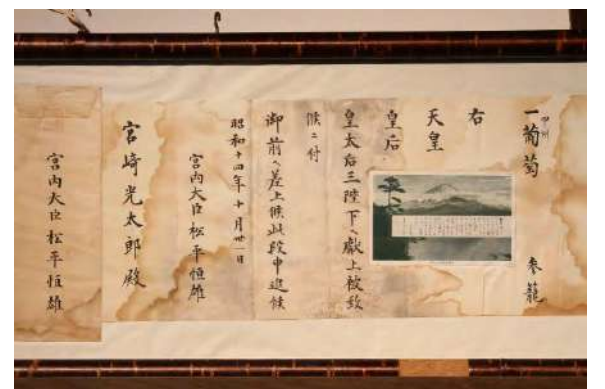 一甲州葡萄 参籠
右
天皇
皇后
皇太后三陛下へ献上被致
候ニ付
御前へ差上候此段申進候
昭和十四年十月卅一日
宮内大臣松平恒雄
宮崎光太郎殿
宮内大臣松平恒雄